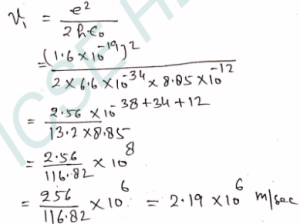 V₁ = e² / 2h·ε₀
= (1·6 × 10⁻¹⁹)² / 2 × 6·6 × 10⁻³⁴ × 8·85 × 10⁻¹²
= 2·56 × 10⁻³⁸⁺³⁴⁺¹² / 13·2 × 8·85
= 2·56 / 116·82 × 10⁸
= 256 / 116·82 × 10⁶ = 2·19 × 10⁶ m/sec
ICSE H